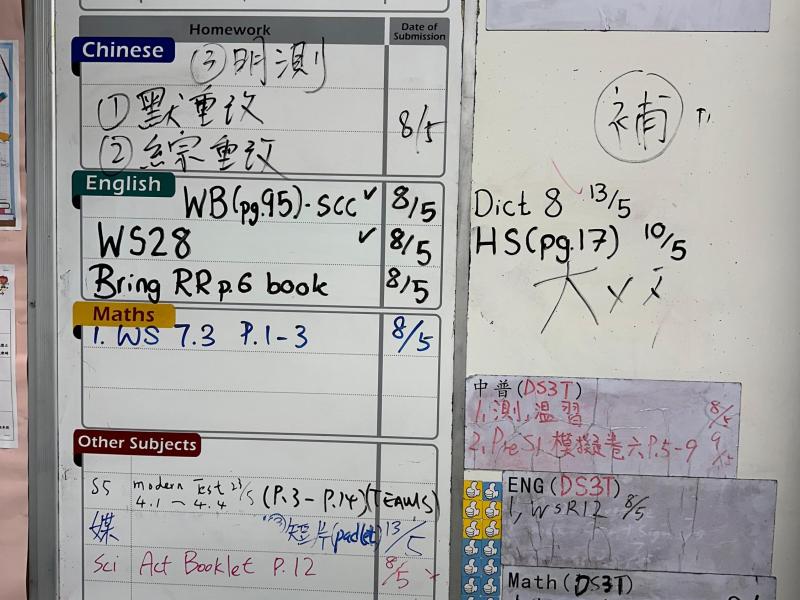 Homework
Date of Submission
Chinese
③明測
①默重改
②綜重改
8/5
English
WB(pg.95)-SCC ✓ 8/5
WS28 ✓ 8/5
Bring RR p.6 book 8/5
Maths
1. WS 7.3 P.1-3 8/5
Other Subjects
SS modern Test 23/5 (P.3-P.14)(TEAMS)
4.1~4.4
媒 短片(padlet) 13/5
Sci Act Booklet P.12 8/5
補
Dict 8 13/5
HS(pg.17) 10/5
中普(DS3T)
1, 測,溫習 8/5
2, Pre S1 模擬卷六 P.5-9 9/5
ENG(DS3T)
1, WSR12 8/5
Math(DS3T)